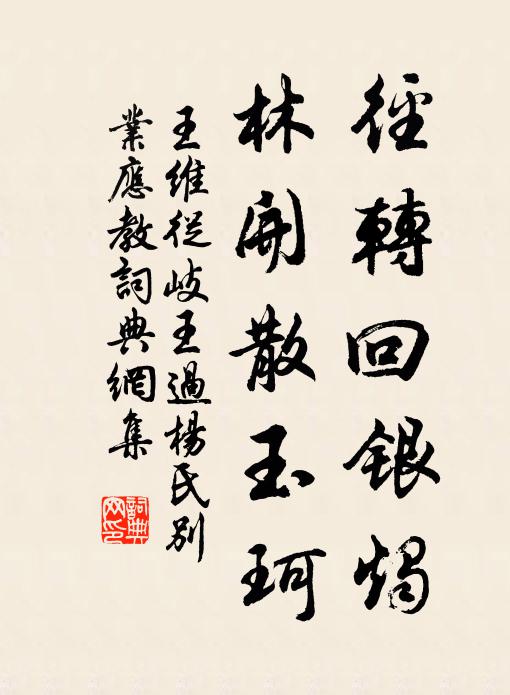 徑轉回銀燭
林開散玉珂
王維從岐王過楊氏別
業應教詞典網集
詞典网印